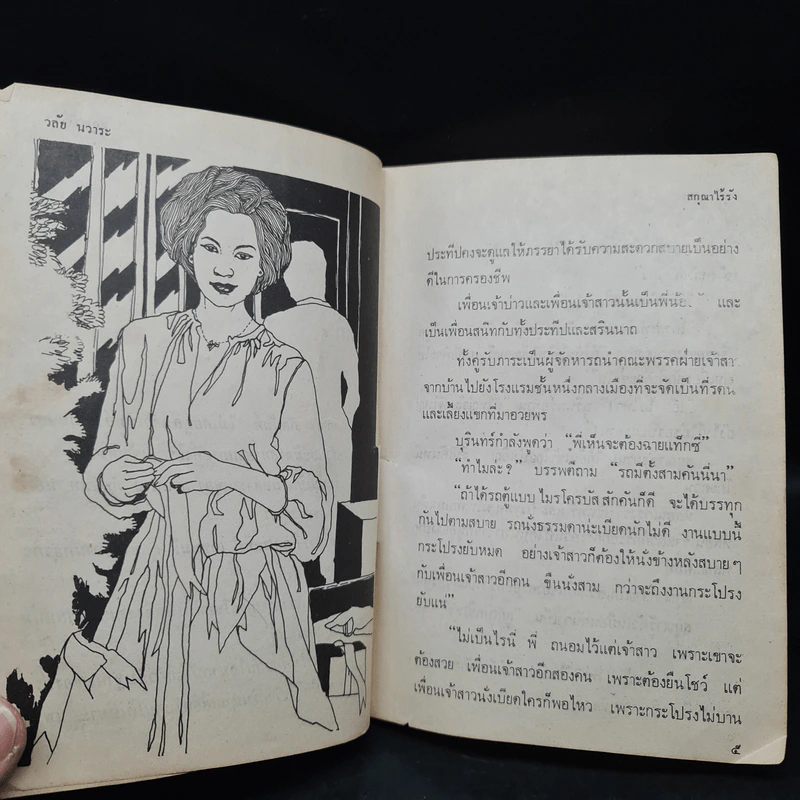 วลัย นวาระ
สกุณาไร้รัง
ประทีปคงจะดูแลให้ภรรยาได้รับความสะดวกสบายเป็นอย่าง
ดีในการครองชีพ
เพื่อนเจ้าบ่าวและเพื่อนเจ้าสาวนั้นเป็นพี่น้อง และ
เป็นเพื่อนสนิทกับทั้งประทีปและสรินนาถ
ทั้งคู่รับภาระเป็นผู้จัดหารถนำคณะพรรคฝ่ายเจ้าสา
จากบ้านไปยังโรงแรมชั้นหนึ่งกลางเมืองที่จะจัดเป็นที่รดน
และเลี้ยงแขกที่มาอวยพร
บุรินทร์กำลังพูดว่า “พี่เห็นจะต้องฉายแท็กซี่”
“ทำไมล่ะ?” บรรพตีถาม “รถมีตั้งสามคันนี่นา”
“ถ้าได้รถตู้แบบ ไมรโครบัส สักคันก็ดี จะได้บรรทุก
กันไปตามสบาย รถนั่งธรรมดาน่ะเบียดนักไม่ดี งานแบบนี้
กระโปรงยับหมด อย่างเจ้าสาวก็ต้องให้นั่งข้างหลังสบายๆ
กับเพื่อนเจ้าสาวอีกคน ขืนนั่งสาม กว่าจะถึงงานกระโปรง
ยับแน่”
“ไม่เป็นไรนี่ พี่ ถนอมไว้แต่เจ้าสาว เพราะเขาจะ
ต้องสวย เพื่อนเจ้าสาวอีกสองคน เพราะต้องยืนโชว์ แต่
เพื่อนเจ้าสาวนั่งเบียดใครก็พอไหว เพราะกระโปรงไม่บาน
๕